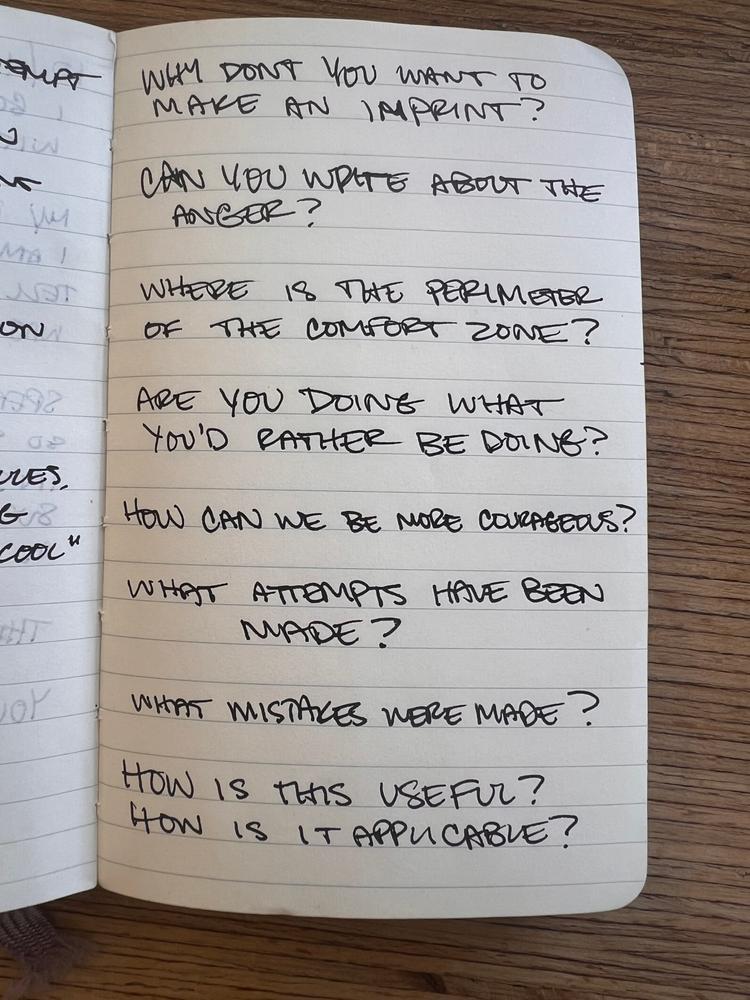 WHY DONT YOU WANT TO
MAKE AN IMPRINT?
CAN YOU WRITE ABOUT THE
ANGER?
WHERE IS THE PERIMETER
OF THE COMFORT ZONE?
ARE YOU DOING WHAT
YOU'D RATHER BE DOING?
HOW CAN WE BE MORE COURAGEOUS?
WHAT ATTEMPTS HAVE BEEN
MADE?
WHAT MISTAKES WERE MADE?
HOW IS THIS USEFUL?
HOW IS IT APPLICABLE?
ON
COOL"